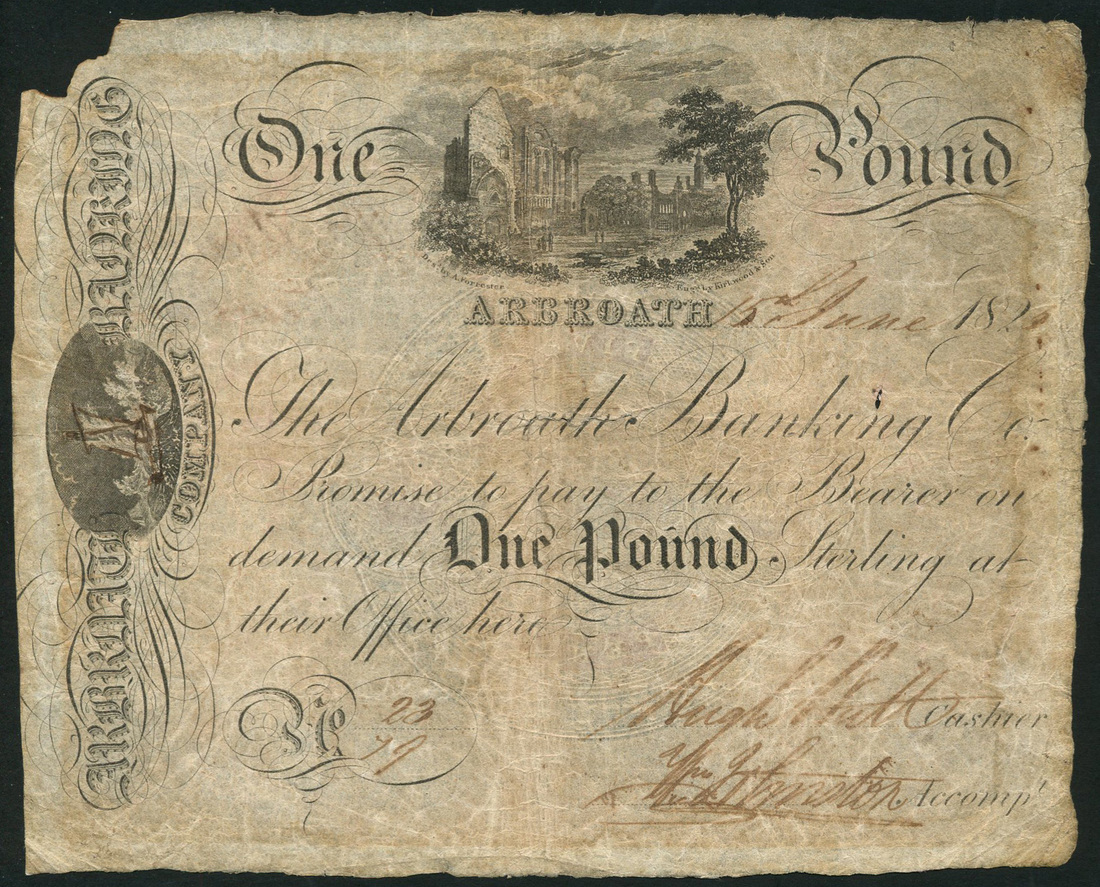 One Pound
Engd. by Kirkwood & Son
ARBROATH 15 June 182
The Arbroath Banking Co.
Promise to pay to the Bearer on
demand One Pound Sterling at
their Office here
No 23
79
Hugh Cashier
Wm. Johnston Accompt.
ARBROATH BANKING
COMPANY